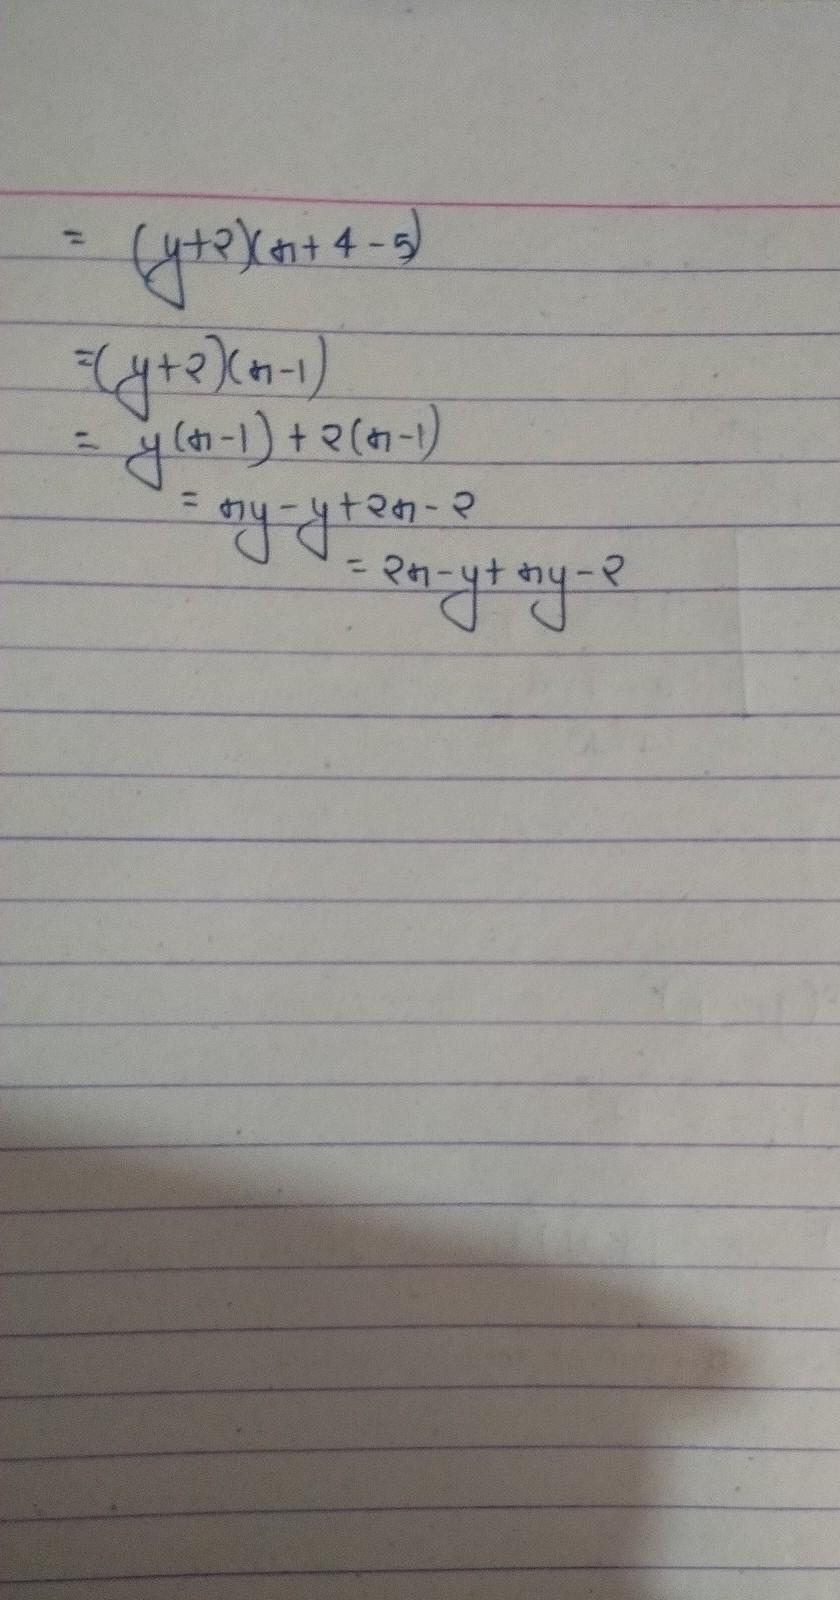 = (y+2)(x+4-5)
=(y+2)(x-1)
= y(x-1)+2(x-1)
= xy-y+2x-2
= 2x-y+xy-2